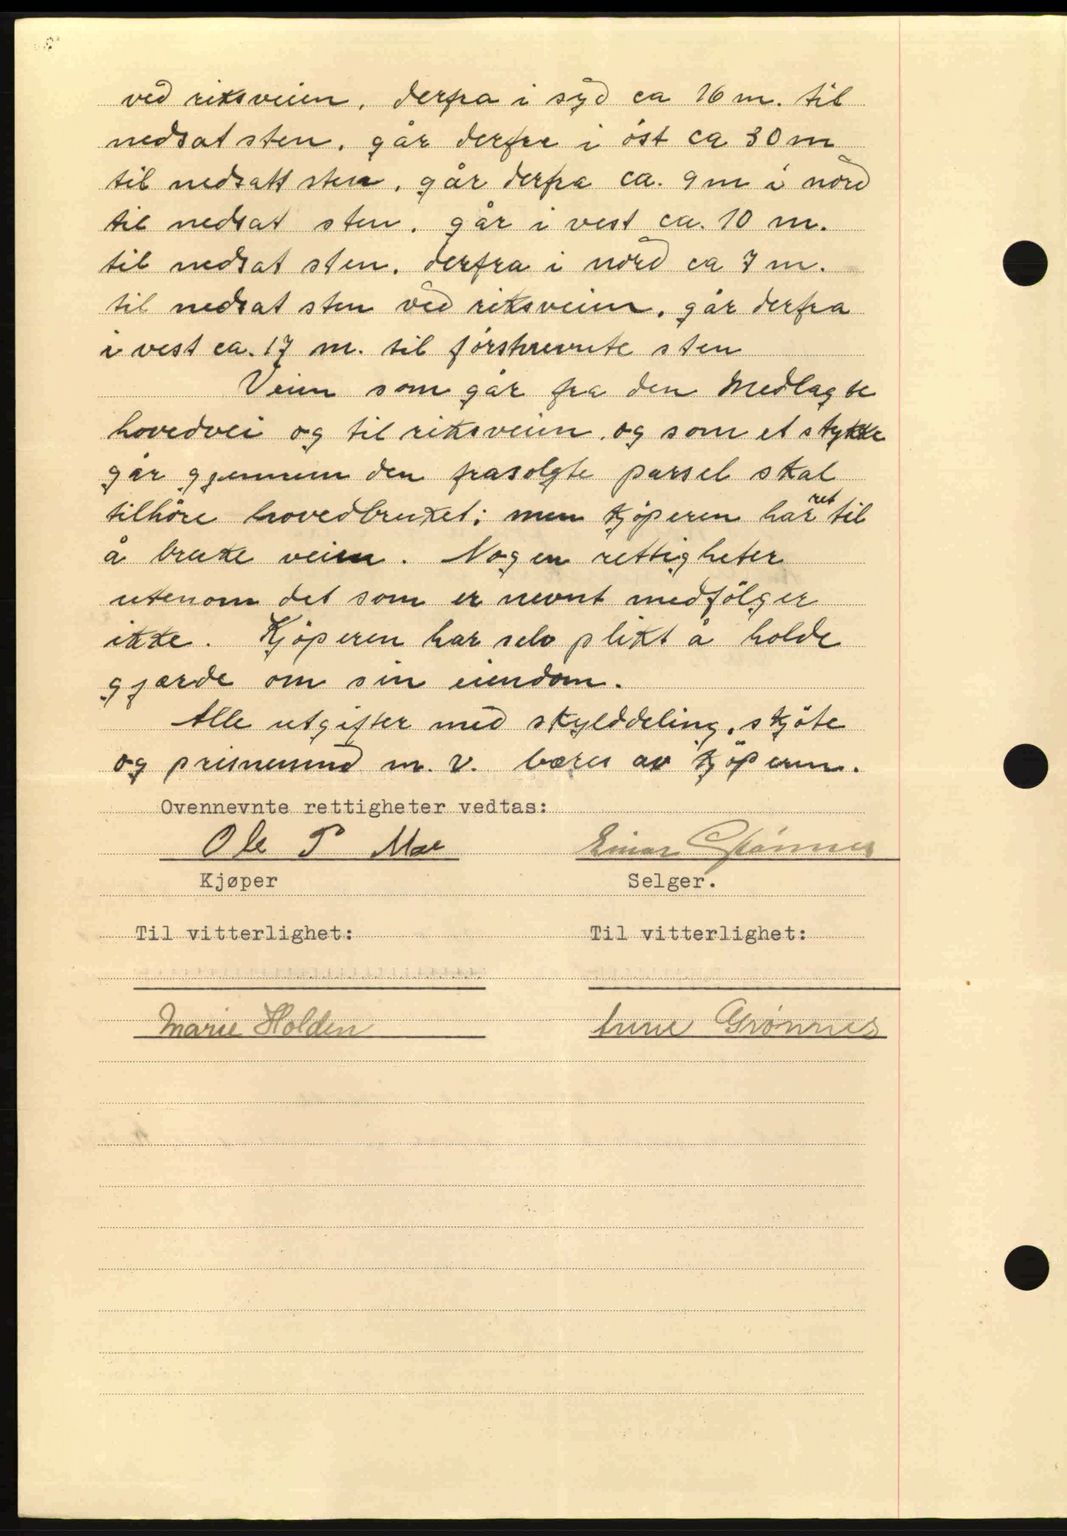 ved riksveien, derfra i syd ca 16 m. til
nedsat sten. går derfra i öst ca 30 m
til nedsatt sten. går derfra ca. 9 m i nord
til nedsat sten. går i vest ca. 10 m.
til nedsat sten. derfra i nord ca 7 m.
til nedsat sten ved riksveien. går derfra
i vest ca. 17 m. til førstnevnte sten
Veien som går fra den nedlagte
hovedvei og til riksveien, og som et stykke
går gjennem den frasolgte parsel skal
tilhöre hovedbruket; men kjöperen har ret til
å bruke veien. Nogen rettigheter
utenom det som er nevnt medfölger
ikke. Kjöperen har selv plikt å holde
gjærde om sin eiendom.
Alle utgifter med skylddeling, skjöte
og m. v. bæres av kjöperen.
Ovennevnte rettigheter vedtas:
Ole P Mæ Einar Grønnes
Kjøper Selger.
Til vitterlighet: Til vitterlighet:
Marie Holden Anne Grønnes